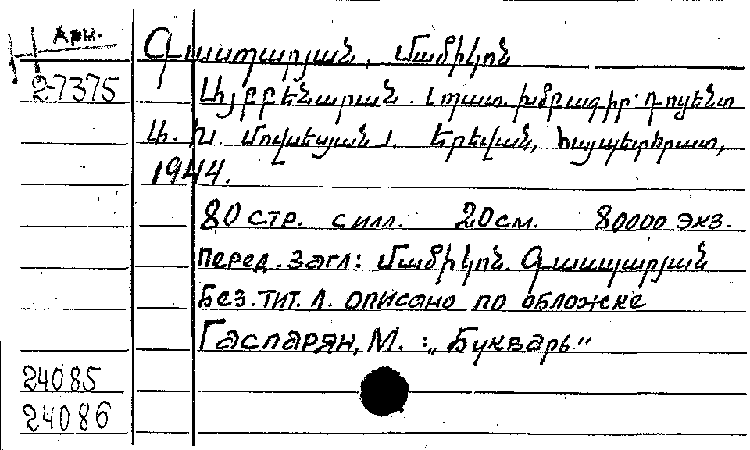 Арм.
Գասպարյան, Մամիկոն
2-7375 Այբբենարան. [պատ. խմբագիր՝ դոցենտ
Ա. Խ. Մովսեսյան]. Երևան, Հայպետհրատ,
1944.
80 стр. с илл. 20 см. 80000 экз.
Перед. загл: Մամիկոն Գասպարյան
Без. тит. л. описано по обложке
Гаспарян, М. : „Букварь"
24085
24086